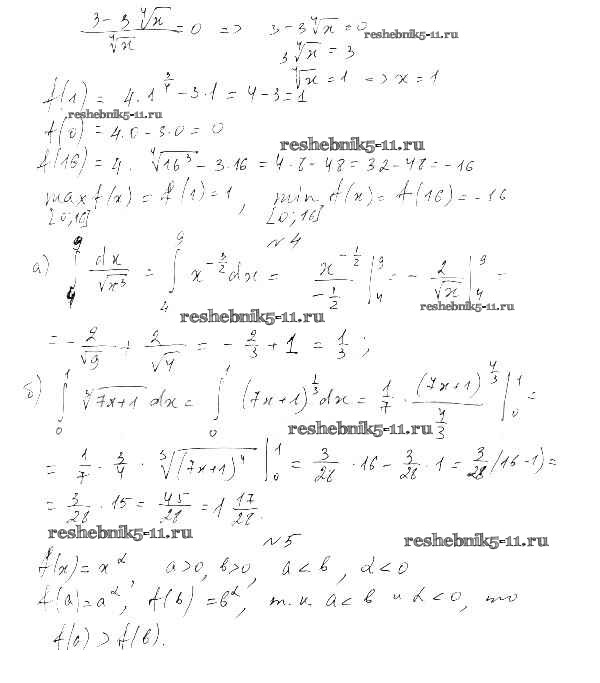 (3 − 3 ∜x) / ∜x = 0 => 3 − 3 ∜x = 0
reshebnik5-11.ru
3 ∜x = 3
∜x = 1 => x = 1
f(1) = 4 · 1^(3/4) − 3 · 1 = 4 − 3 = 1
reshebnik5-11.ru
f(0) = 4 · 0 − 3 · 0 = 0
reshebnik5-11.ru
f(16) = 4 · ∜(16³) − 3 · 16 = 4 · 8 − 48 = 32 − 48 = −16
max f(x) = f(1) = 1, min f(x) = f(16) = −16
[0; 16] [0; 16]
№4
а) ∫₄⁹ dx/√(x³) = ∫₄⁹ x^(−3/2) dx = x^(−1/2) / (−1/2) |₄⁹ = − 2/√x |₄⁹ =
reshebnik5-11.ru
reshebnik5-11.ru
= − 2/√9 + 2/√4 = − 2/3 + 1 = 1/3 ;
б) ∫₀¹ ∛(7x+1) dx = ∫₀¹ (7x+1)^(1/3) dx = 1/7 · (7x+1)^(4/3) / (4/3) |₀¹ =
reshebnik5-11.ru
= 1/7 · 3/4 · ∛((7x+1)⁴) |₀¹ = 3/28 · 16 − 3/28 · 1 = 3/28 (16−1) =
= 3/28 · 15 = 45/28 = 1 17/28.
reshebnik5-11.ru
№5
reshebnik5-11.ru
f(x) = x^α, a>0, b>0, a<b, α<0
f(a) = a^α, f(b) = b^α, т.к. a<b и α<0, то
f(a) > f(b).